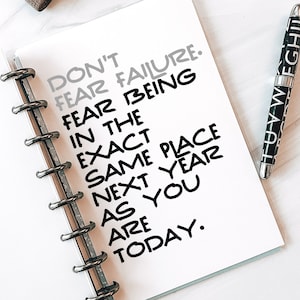 DON'T
FEAR FAILURE.
FEAR BEING
IN THE
EXACT
SAME PLACE
NEXT YEAR
AS YOU
ARE
TODAY.